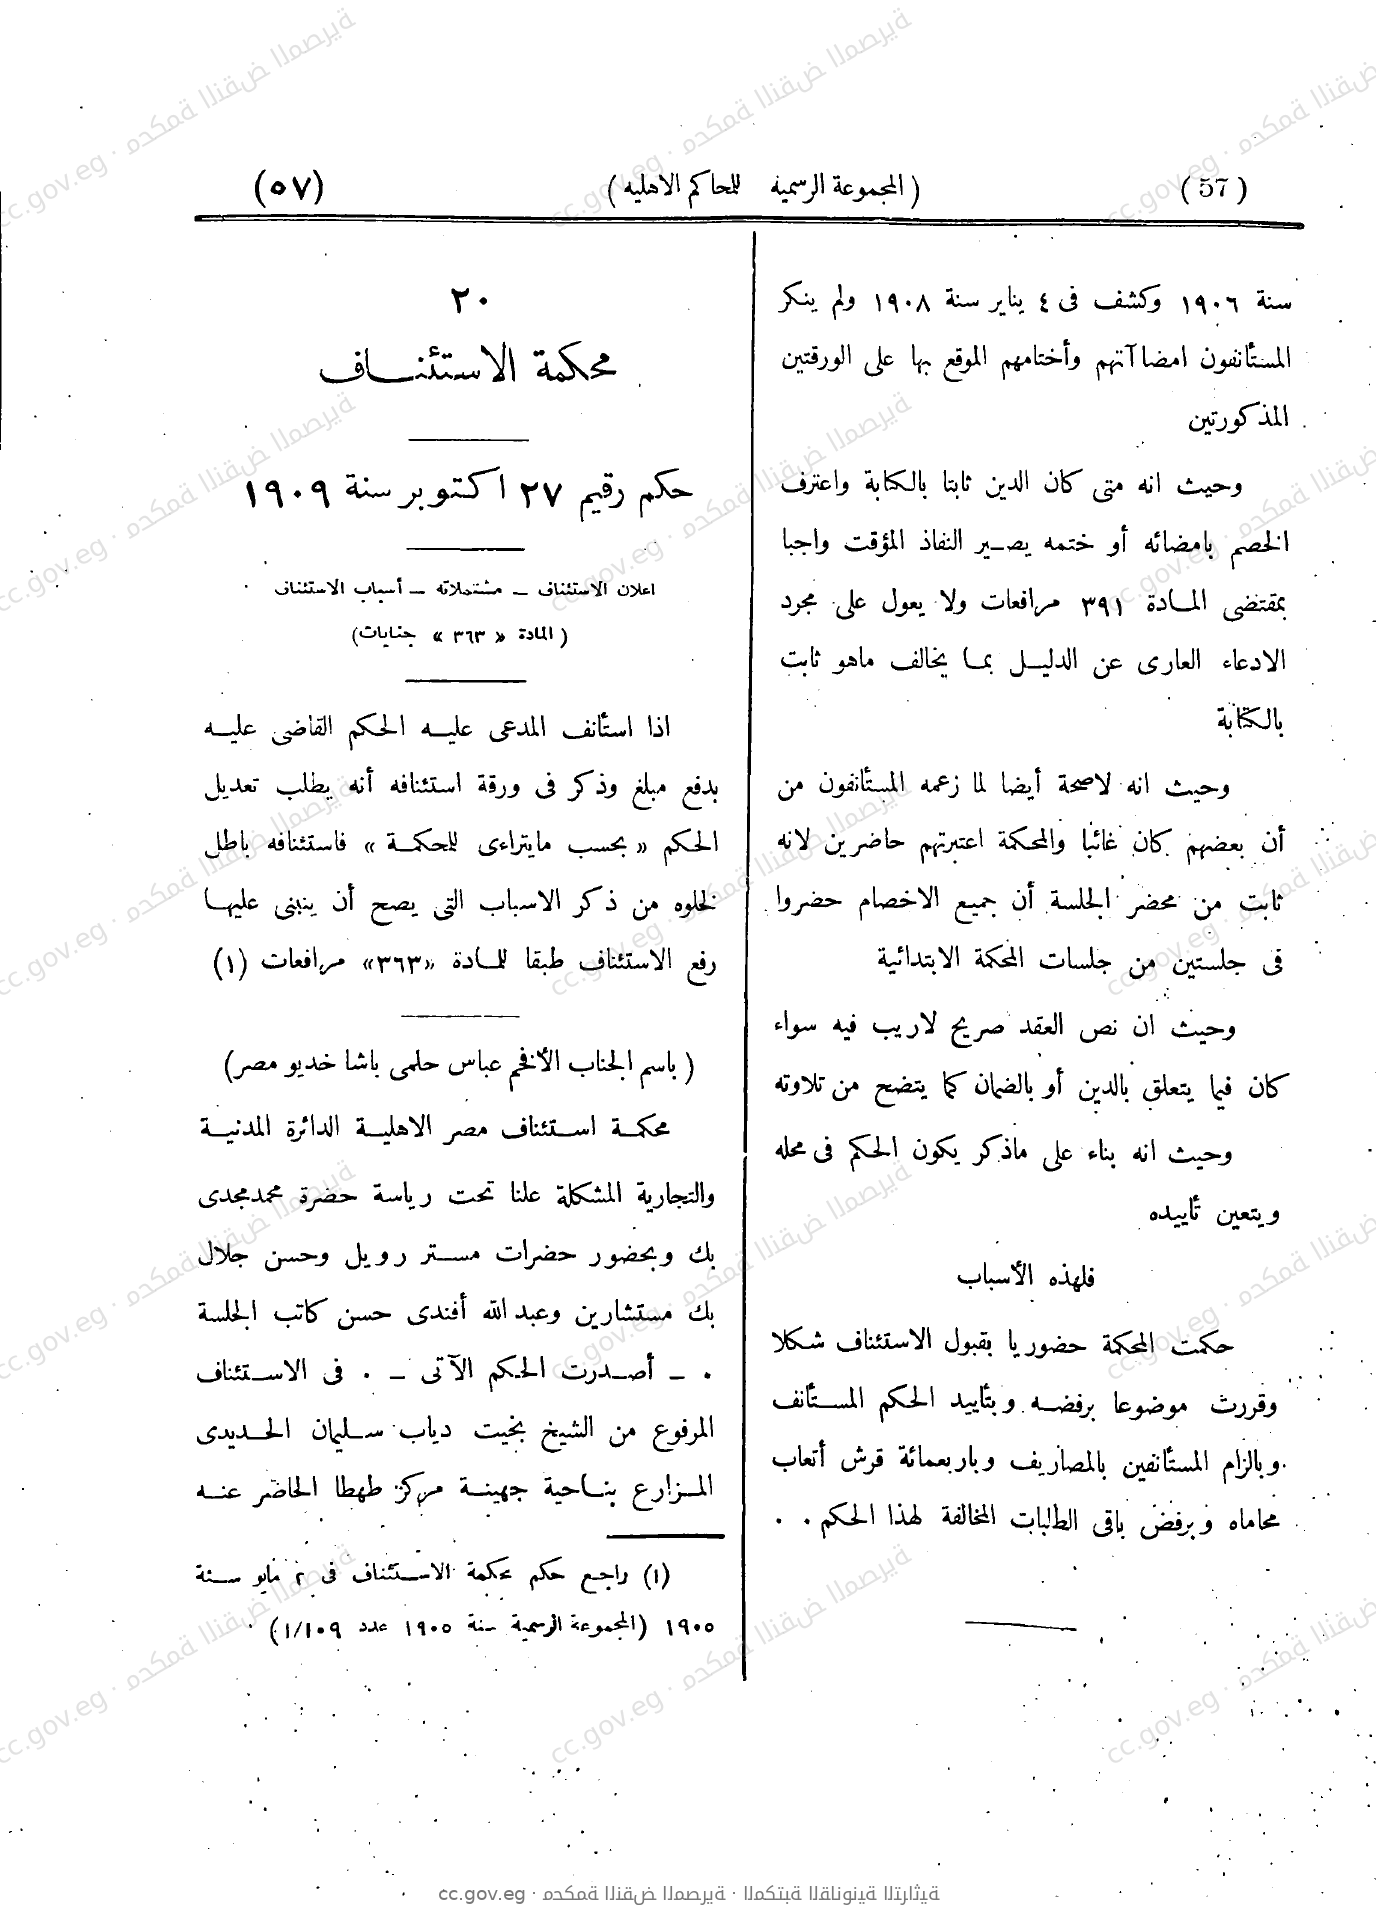 (57) (المجموعة الرسمية للمحاكم الاهلية) (٥٧)
سنة ١٩٠٦ وكشف فى ٤ يناير سنة ١٩٠٨ ولم ينكر
المستأنفون امضاآتهم وأختامهم الموقع بها على الورقتين
المذكورتين
وحيث انه متى كان الدين ثابتا بالكتابة واعترف
الخصم بامضائه أو ختمه يصير النفاذ المؤقت واجبا
بمقتضى المادة ٣٩١ مرافعات ولا يعول على مجرد
الادعاء العارى عن الدليل بما يخالف ماهو ثابت
بالكتابة
وحيث انه لاصحة أيضا لما زعمه المستأنفون من
أن بعضهم كان غائبا والمحكمة اعتبرتهم حاضرين لانه
ثابت من محضر الجلسة أن جميع الاخصام حضروا
فى جلستين من جلسات المحكمة الابتدائية
وحيث ان نص العقد صريح لاريب فيه سواء
كان فيما يتعلق بالدين أو بالضمان كما يتضح من تلاوته
وحيث انه بناء على ماذكر يكون الحكم فى محله
ويتعين تأييده
فلهذه الأسباب
حكمت المحكمة حضوريا بقبول الاستئناف شكلا
وقررت موضوعا برفضه وبتأييد الحكم المستأنف
وبالزام المستأنفين بالمصاريف وباربعمائة قرش أتعاب
محاماه وبرفض باقى الطلبات المخالفة لهذا الحكم . .
٢٠
محكمة الاستئناف
حكم رقيم ٢٧ اكتوبر سنة ١٩٠٩
اعلان الاستئناف – مشتملاته – أسباب الاستئناف
(المادة « ٣٦٣ » جنايات)
اذا استأنف المدعى عليه الحكم القاضى عليه
بدفع مبلغ وذكر فى ورقة استئنافه أنه يطلب تعديل
الحكم « بحسب مايتراءى للمحكمة » فاستئنافه باطل
لخلوه من ذكر الاسباب التى يصح أن ينبنى عليها
رفع الاستئناف طبقا للمادة «٣٦٣» مرافعات (١)
( باسم الجناب الأفخم عباس حلمى باشا خديو مصر)
محكمة استئناف مصر الاهلية الدائرة المدنية
والتجارية المشكلة علنا تحت رياسة حضرة محمد مجدى
بك وبحضور حضرات مستر رويل وحسن جلال
بك مستشارين وعبد الله أفندى حسن كاتب الجلسة
. – أصدرت الحكم الآتى – . فى الاستئناف
المرفوع من الشيخ بخيت دياب سليمان الحديدى
المزارع بناحية جهينة مركز طهطا الحاضر عنه
(١) راجع حكم محكمة الاستئناف فى ٢ مايو سنة
١٩٠٥ (المجموعة الرسمية سنة ١٩٠٥ عدد ١/١٠٩)
cc.gov.eg · محكمة النقض المصرية · المكتبة القانونية التراثية